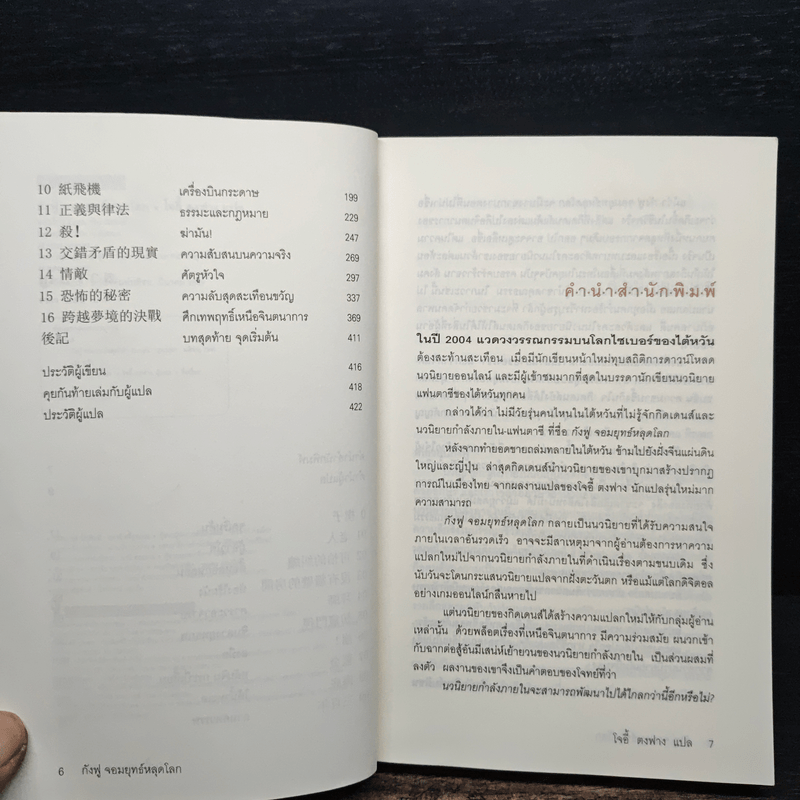 10 紙飛機 เครื่องบินกระดาษ 199
11 正義與律法 ธรรมะและกฎหมาย 229
12 殺! ฆ่ามัน! 247
13 交錯矛盾的現實 ความสับสนบนความจริง 269
14 情敵 ศัตรูหัวใจ 297
15 恐怖的秘密 ความลับสุดสะเทือนขวัญ 337
16 跨越夢境的決戰 ศึกเทพฤทธิ์เหนือจินตนาการ 369
後記 บทสุดท้าย จุดเริ่มต้น 411
ประวัติผู้เขียน 416
คุยกันท้ายเล่มกับผู้แปล 418
ประวัติผู้แปล 422
6 กังฟู จอมยุทธ์หลุดโลก
คำ·นำ·สำ·นัก·พิ·ม·พ์
ในปี 2004 แวดวงวรรณกรรมบนโลกไซเบอร์ของไต้หวัน
ต้องสะท้านสะเทือน เมื่อมีนักเขียนหน้าใหม่ทุบสถิติการดาวน์โหลด
นวนิยายออนไลน์ และมีผู้เข้าชมมากที่สุดในบรรดานักเขียนนวนิยาย
แฟนตาซีของไต้หวันทุกคน
กล่าวได้ว่า ไม่มีวัยรุ่นคนไหนในไต้หวันที่ไม่รู้จักกิดเดนส์และ
นวนิยายกำลังภายใน-แฟนตาซี ที่ชื่อ กังฟู จอมยุทธ์หลุดโลก
หลังจากทำยอดขายถล่มทลายในไต้หวัน ข้ามไปยังฝั่งจีนแผ่นดิน
ใหญ่และญี่ปุ่น ล่าสุดกิดเดนส์นำนวนิยายของเขาบุกมาสร้างปรากฏ
การณ์ในเมืองไทย จากผลงานแปลของโจอี้ ตงฟาง นักแปลรุ่นใหม่มาก
ความสามารถ
กังฟู จอมยุทธ์หลุดโลก กลายเป็นนวนิยายที่ได้รับความสนใจ
ภายในเวลาอันรวดเร็ว อาจจะมีสาเหตุมาจากผู้อ่านต้องการหาความ
แปลกใหม่ไปจากนวนิยายกำลังภายในที่ดำเนินเรื่องตามขนบเดิม ซึ่ง
นับวันจะโดนกระแสนวนิยายแปลจากฝั่งตะวันตก หรือแม้แต่โลกดิจิตอล
อย่างเกมออนไลน์กลืนหายไป
แต่นวนิยายของกิดเดนส์ได้สร้างความแปลกใหม่ให้กับกลุ่มผู้อ่าน
เหล่านั้น ด้วยพล็อตเรื่องที่เหนือจินตนาการ มีความร่วมสมัย ผนวกเข้า
กับฉากต่อสู้อันมีเสน่ห์เย้ายวนของนวนิยายกำลังภายใน เป็นส่วนผสมที่
ลงตัว ผลงานของเขาจึงเป็นคำตอบของโจทย์ที่ว่า
นวนิยายกำลังภายในจะสามารถพัฒนาไปได้ไกลกว่านี้อีกหรือไม่?
โจอี้ ตงฟาง แปล 7